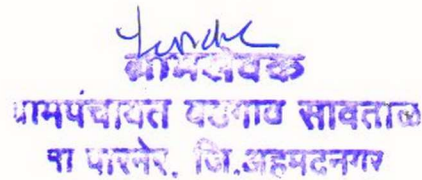 ग्रामसेवक
ग्रामपंचायत वडगाव सावताळ
ता पारनेर, जि.अहमदनगर